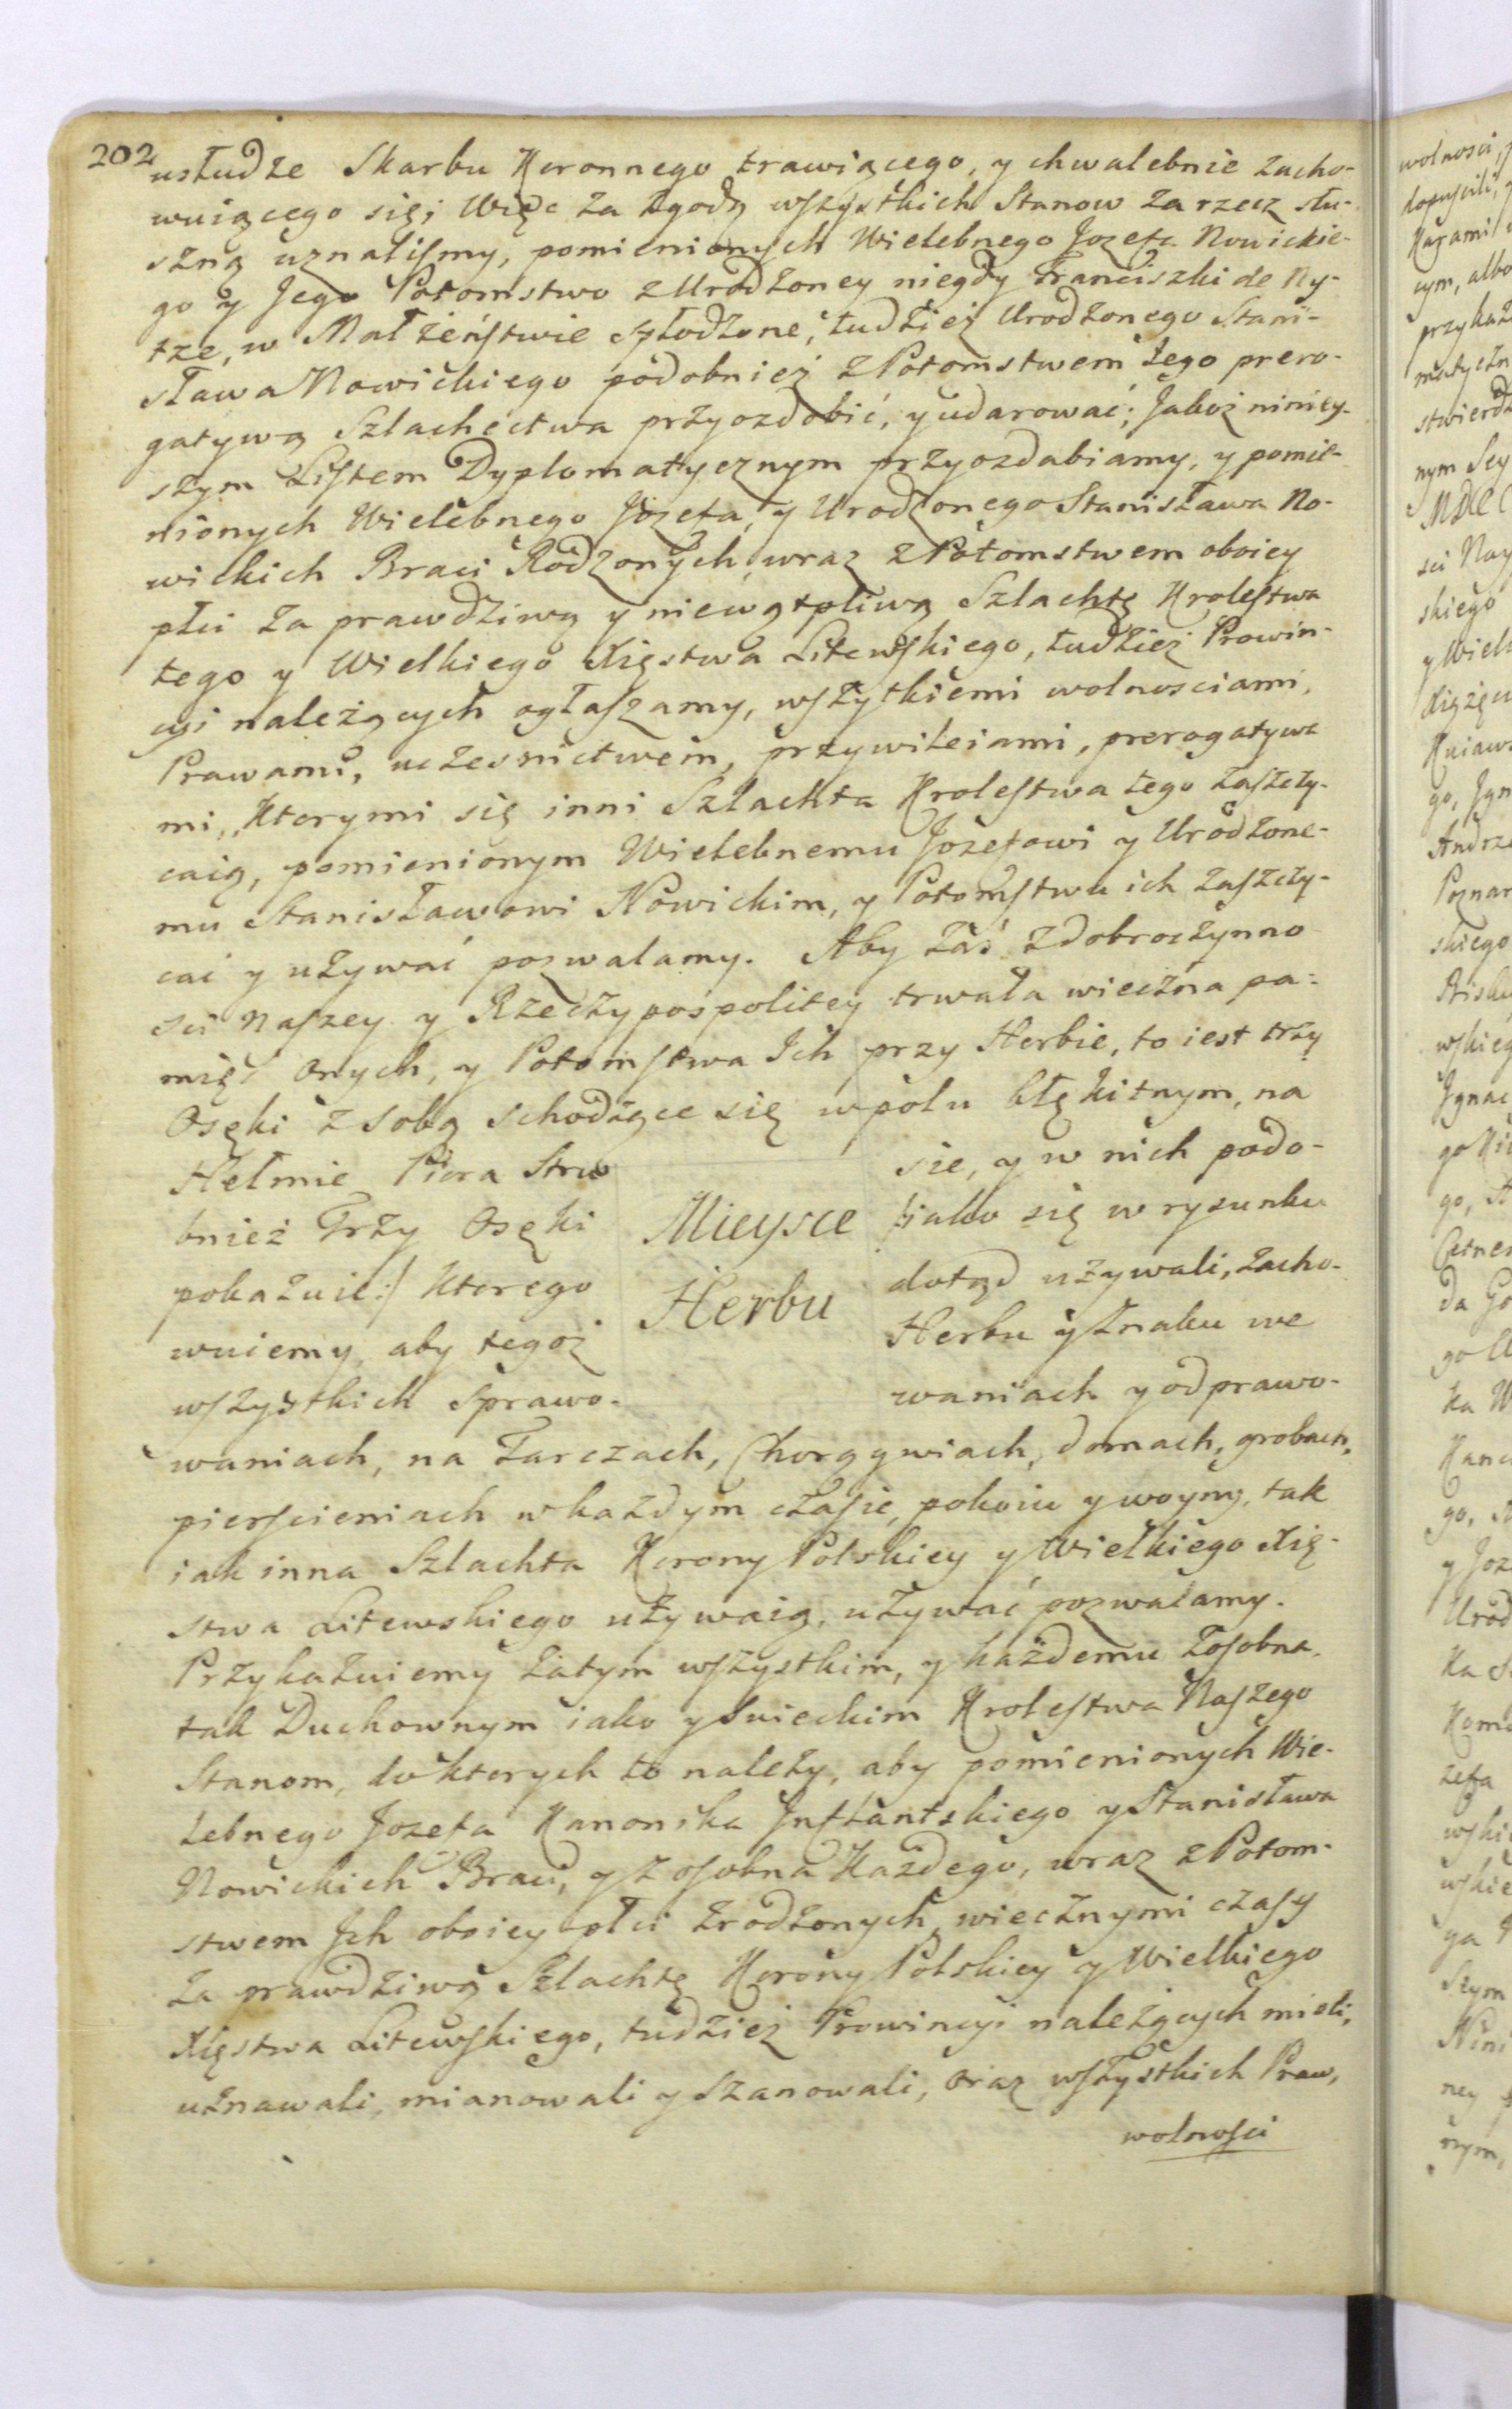 202
usłudze Skarbu Koronnego trawiącego, y chwalebnie zacho-
wuiącego się; Więc za zgodą wszystkich Stanow za rzecz słu-
szną uznalismy, pomienionych Wielebnego Jozefa Nowickie-
go y Jego Potomstwo z Urodzoney niegdy Franciszki de Ny-
tze, w Małżeństwie spłodzone, tudzież Urodzonego Stani-
sława Nowickiego podobnież z Potomstwem tego prero-
gatywą Szlachectwa przyozdobić, y udarować; Jakoż niniey-
szym Listem Dyplomatycznym przyozdabiamy, y pomie-
nionych Wielebnego Józefa, y Urodzonego Stanisława No-
wickich Braci Rodzonych, wraz z Potomstwem oboiey
płci za prawdziwą y niewątpliwą Szlachtę Krolestwa
tego y Wielkiego Xięstwa Litewskiego, tudzież Prowin-
cyi należących ogłaszamy, wszytkiemi wolnosciami,
Prawami, uczesnictwem, przywileiami, prerogatywa
mi, Ktorymi się inni Szlachta Krolestwa tego zaszczy-
caią, pomienionym Wielebnemu Jozefowi y Urodzone-
mu Stanisławowi Nowickim, y Potomstwu ich zaszczy-
cać y używać pozwalamy. Aby zaś z dobroczynno
sci Naszey y Rzeczypospolitey trwała wieczna pa-
mięć onych, y Potomstwa Ich przy Herbie, to iest trzy
Osęki z sobą schodzące się w polu błękitnym, na
Hełmie Piora Stru sie, y w nich podo-
bnież Trzy Osęki Mieysce /: iako się w rysunku
pokazuie :/ Ktorego Herbu dotąd używali, zacho-
wuiemy, aby tegoż Herbu y Znaku we
wszystkich sprawo- waniach y odprawo-
waniach, na Tarczach, Chorągwiach, domach, grobach,
pierscieniach w każdym czasie, pokoiu y woyny, tak
iak inna Szlachta Korony Polskiey y Wielkiego Xię-
stwa Litewskiego używaią, używać pozwalamy.
Przykazuiemy zatym wszystkim, y każdemu zosobna,
tak Duchownym iako y Swieckim Krolestwa Naszego
Stanom, do ktorych to należy, aby pomienionych Wie-
lebnego Jozefa Kanonika Inflantskiego y Stanisława
Nowickich Braci, y z osobna Każdego, wraz z Potom-
stwem Jch oboiey płci zrodzonych, wiecznymi czasy
za prawdziwą Szlachtę Korony Polskiey y Wielkiego
Xięstwa Litewskiego, tudzież Prowincyi należących mieli,
uznawali, mianowali y szanowali, oraz wszystkich Praw,
wolnosci